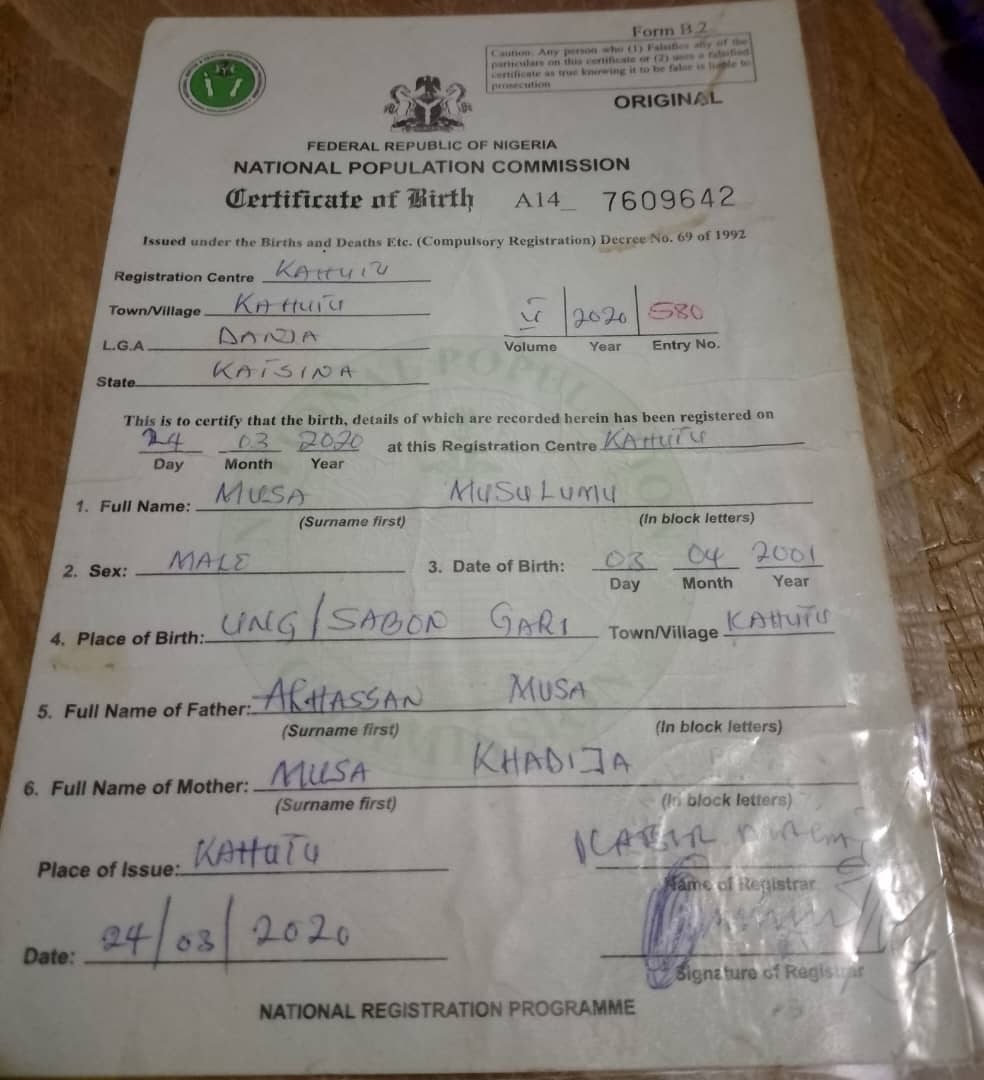 Form B.2
Caution: Any person who (1) Falsifies any of the
particulars on this certificate or (2) uses a falsified
certificate as true knowing it to be false is liable to
prosecution
ORIGINAL
FEDERAL REPUBLIC OF NIGERIA
NATIONAL POPULATION COMMISSION
Certificate of Birth A14_ 7609642
Issued under the Births and Deaths Etc. (Compulsory Registration) Decree No. 69 of 1992
Registration Centre KAHUTU
Town/Village KAHUTU
L.G.A DANJA
2020 580
Volume Year Entry No.
State KATSINA
This is to certify that the birth, details of which are recorded herein has been registered on
24 03 2020 at this Registration Centre KAHUTU
Day Month Year
1. Full Name: MUSA MUSULUMU
(Surname first) (In block letters)
2. Sex: MALE 3. Date of Birth: 03 04 2001
Day Month Year
4. Place of Birth: UNG/SABON GARI Town/Village KAHUTU
5. Full Name of Father: ALHASSAN MUSA
(Surname first) (In block letters)
6. Full Name of Mother: MUSA KHADIJA
(Surname first) (In block letters)
Place of Issue: KAHUTU KABIR
Name of Registrar
Date: 24/03/2020
Signature of Registrar
NATIONAL REGISTRATION PROGRAMME